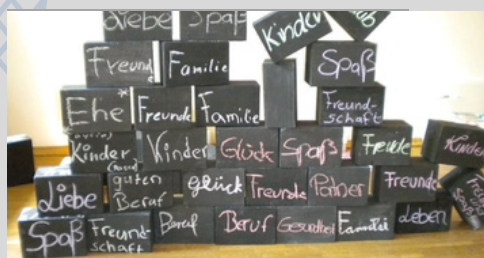 Liebe Spaß Kinder
Freunde Familie Spaß
Ehe* Freunde Familie Freund-
schaft
Kinder Kinder Glück Spaß Freude Kinder
Liebe guten
Beruf glück Freunde Partner Freunde
Spaß Freund-
schaft Beruf Beruf Gesundheit Familie Leben